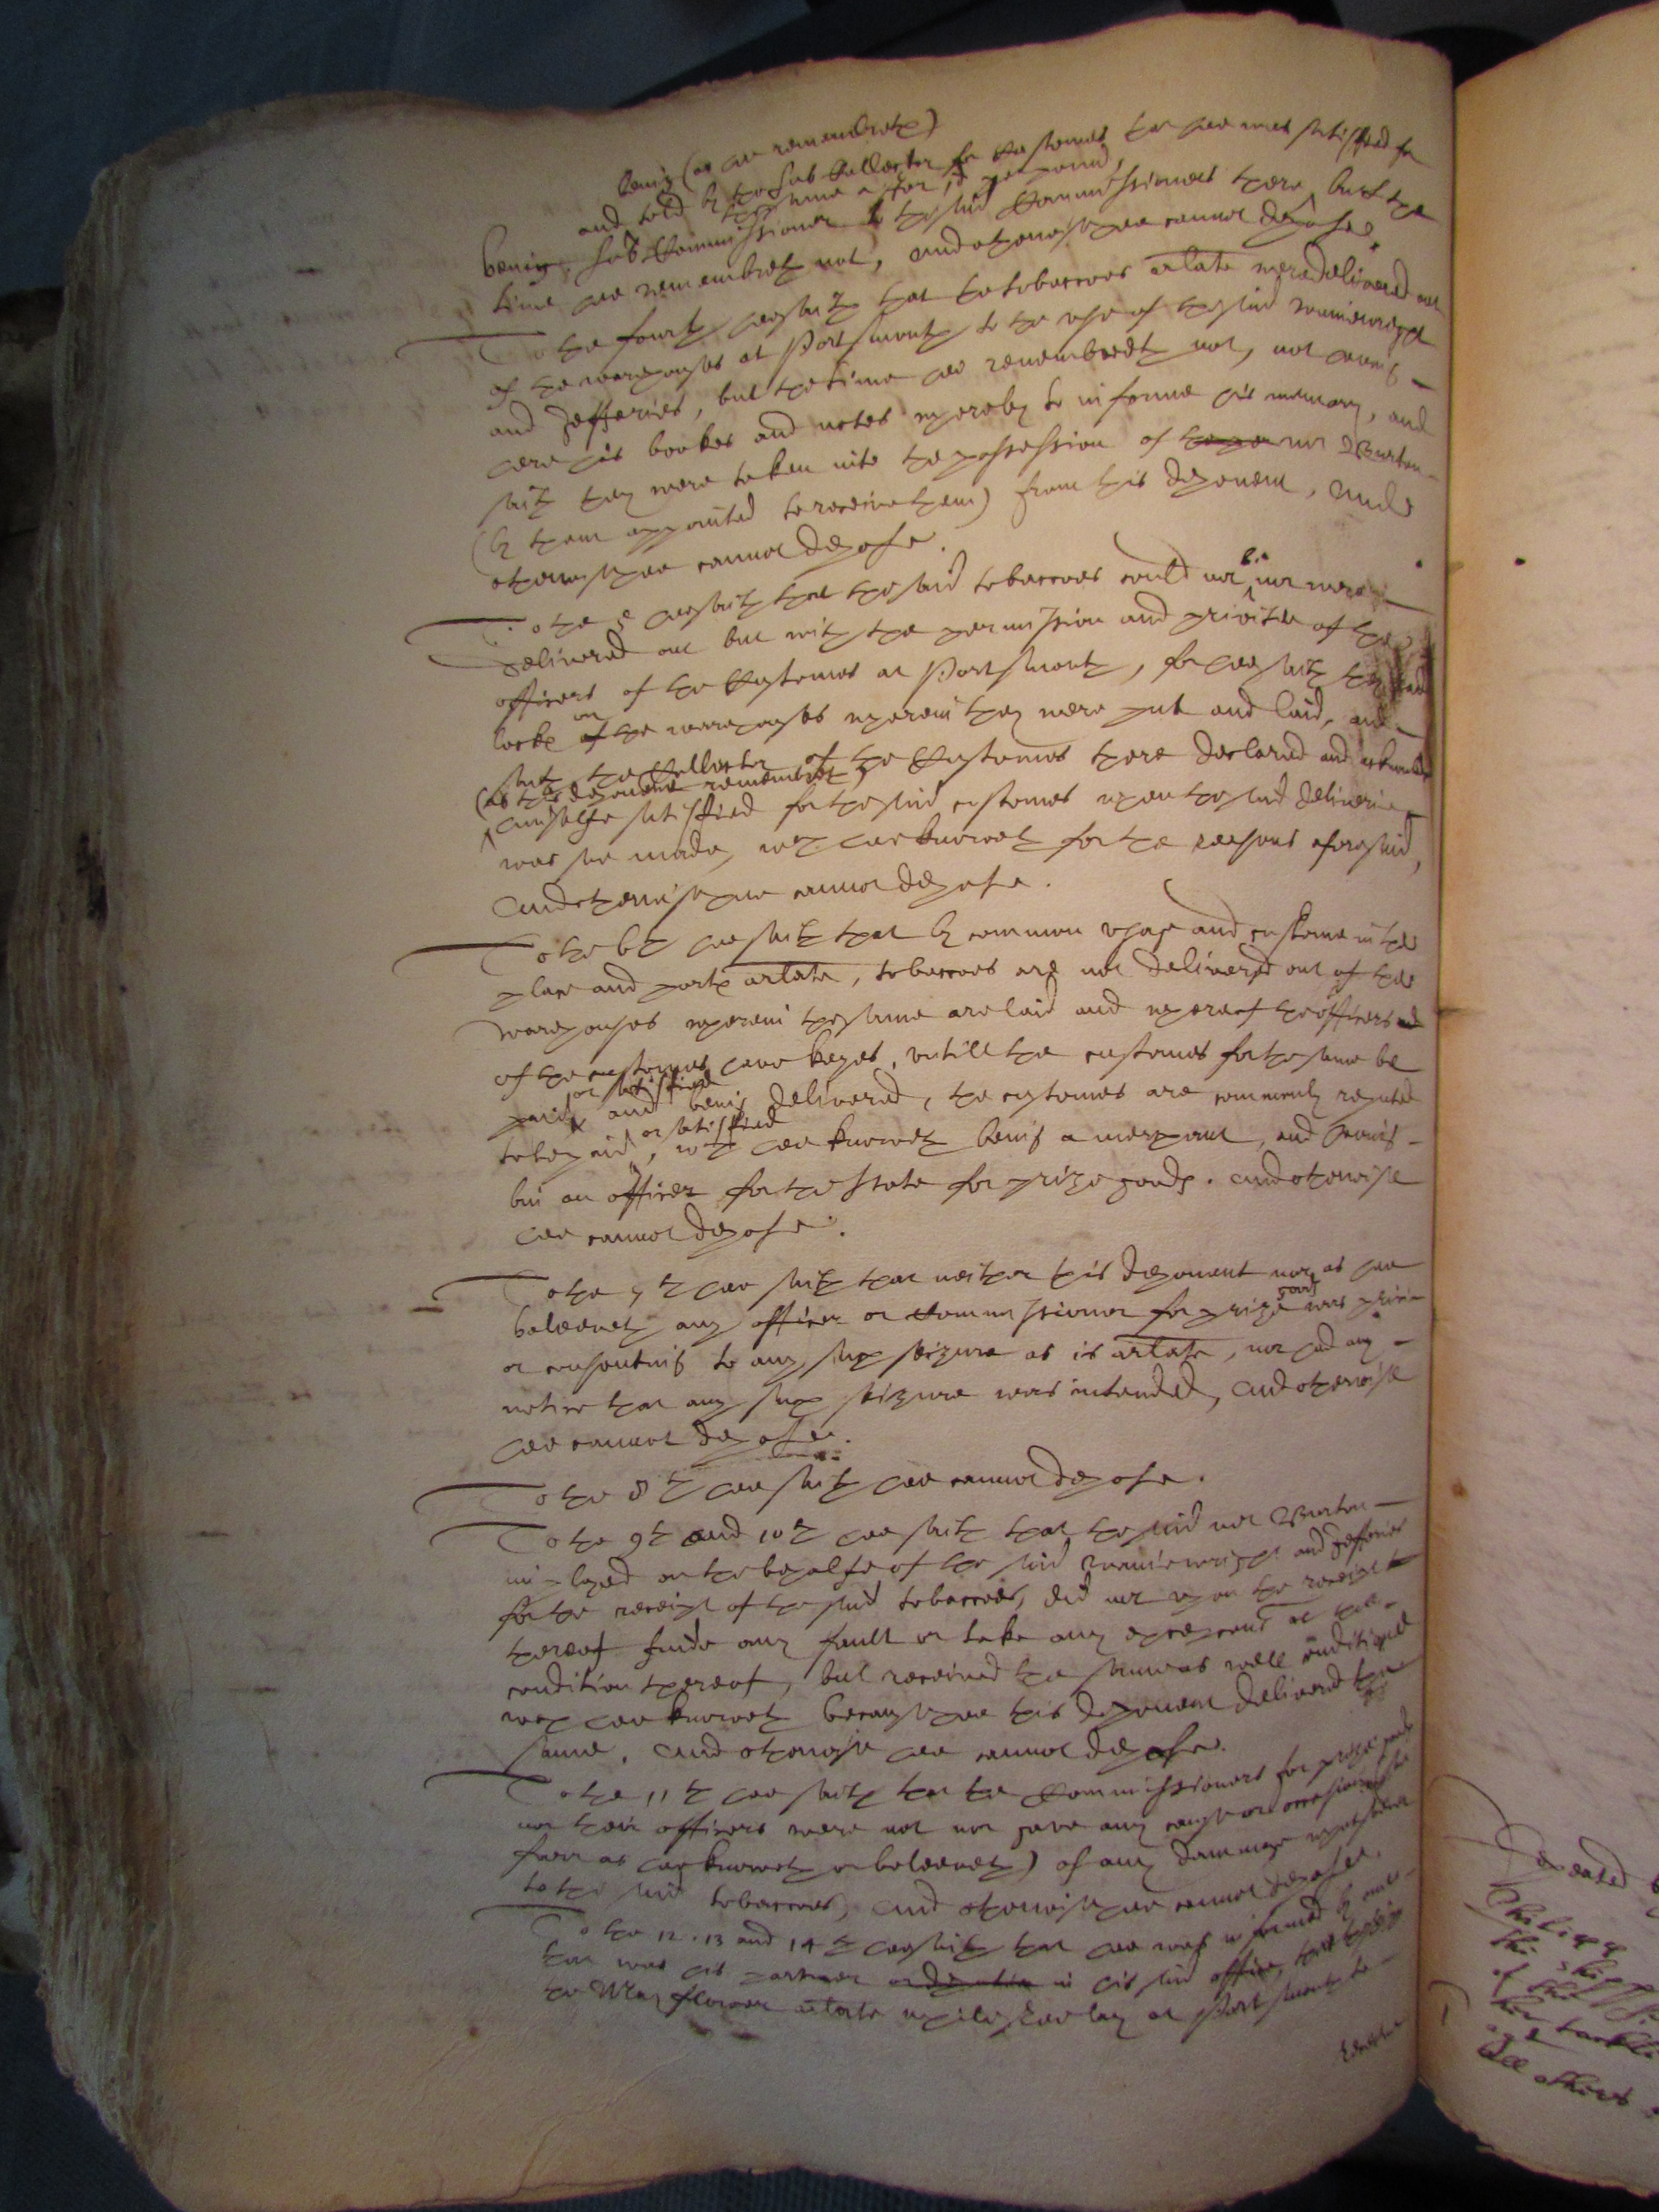 being (as hee remembreth)
and told by the sub Collector for Customes that hee was satisfied for
the same after
being, sub Commissioner to the said Commissioners there, but the
time hee remembreth not, and otherwise hee cannot depose.
To the fourth hee saith that the tobaccoes arlate were delivered out
of the warehouses at Portsmouth to the use of the said
and Jefferies, but the time hee remembreth not, not having
here his bookes and notes whereby to informe his memory, and
saith they were taken into the possession of mr Burton
(by them appointed to receive them) from this deponent, And
otherwise hee cannot depose.
To the 5 hee saith that the said tobaccoes could not be nor were
delivered out but with the permission and privitie of the
officers of the Customes at Portsmouth, for hee saith they had
locks on of the warehouses wherein they were put and laid, and
saith the Collector of the Customes there declared and
(as this deponent remembreth)
himselfe satisfied for the said customes when the said deliverie
was soe made, wch hee knoweth for the reasons aforesaid,
And otherwise hee cannot depose.
To the 6th hee saith that by common usage and custome in the
place and porte arlate, tobaccoes are not delivered out of the
warehouses wherein the same are laid and whereof the officers
of the customes have keyes, untill the customes for the same be
or satisfied
paid and being delivered, the customes are commonly reputed
or satisfied
to be paid, wch hee knoweth being a merchant, and having
bin an officer for the State for prize goods. And otherwise
hee cannot depose.
To the 7th hee saith that neither this deponent nor as hee
beleeveth any officer or Commissioner for prize goods was privie
or consenting to any such seizure as is arlate, nor had any
notice that any such seizure was intended, And otherwise
hee cannot depose.
To the 8th hee saith hee cannot depose.
To the 9th and 10th hee saith that the said mr Burton
imployed on the behalfe of the said and Jefferies
for the receipt of the said tobaccoes, did not upon the receipt
thereof finde any fault or take any excepcons at the
condition thereof, but received the same as well conditioned
wch hee knoweth because hee this deponent delivered the
same, And otherwise hee cannot depose.
To the 11th hee saith that the Commissioners for prize goods
nor their officers were not nor gave any cause or occasion (soe
farr as hee knoweth or beleeveth) of any dammage whatsoever
to the said tobaccoes, And otherwise hee cannot depose.
To the 12. 13 and 14th hee saith that hee was informed by one
that was his partner in his said office, that
the May flower arlate while shee lay at Portsmouth